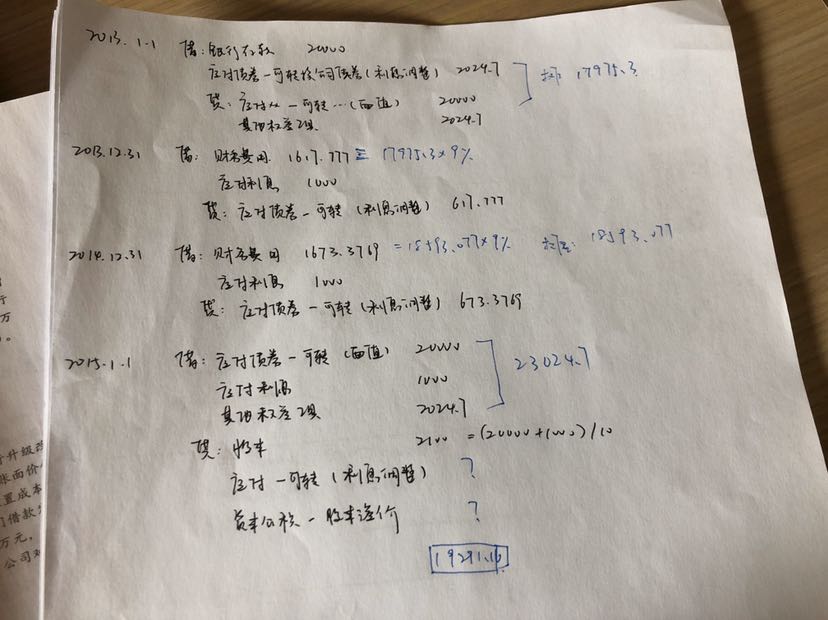 2013.1.1 借：银行存款 20000
应付债券－可转换公司债券（利息调整） 2024.7 17975.3
贷：应付 － 可转…（面值） 20000
其他权益工具 2024.7
2013.12.31 借：财务费用 1617.777 = 17975.3×9%
应付利息 1000
贷：应付债券－可转（利息调整） 617.777
2014.12.31 借：财务费用 1673.3769 = 18593.077×9% 18593.077
应付利息 1000
贷：应付债券－可转（利息调整） 673.3769
2015.1.1 借：应付债券－可转（面值） 20000
应付利息 1000 23024.7
其他权益工具 2024.7
贷：股本 2100 =(20000+1000)/10
应付－可转（利息调整） ?
资本公积－股本溢价 ?
19291.16
行
万
。
升级改
张面价
置成本
门借款
万元，
公司对